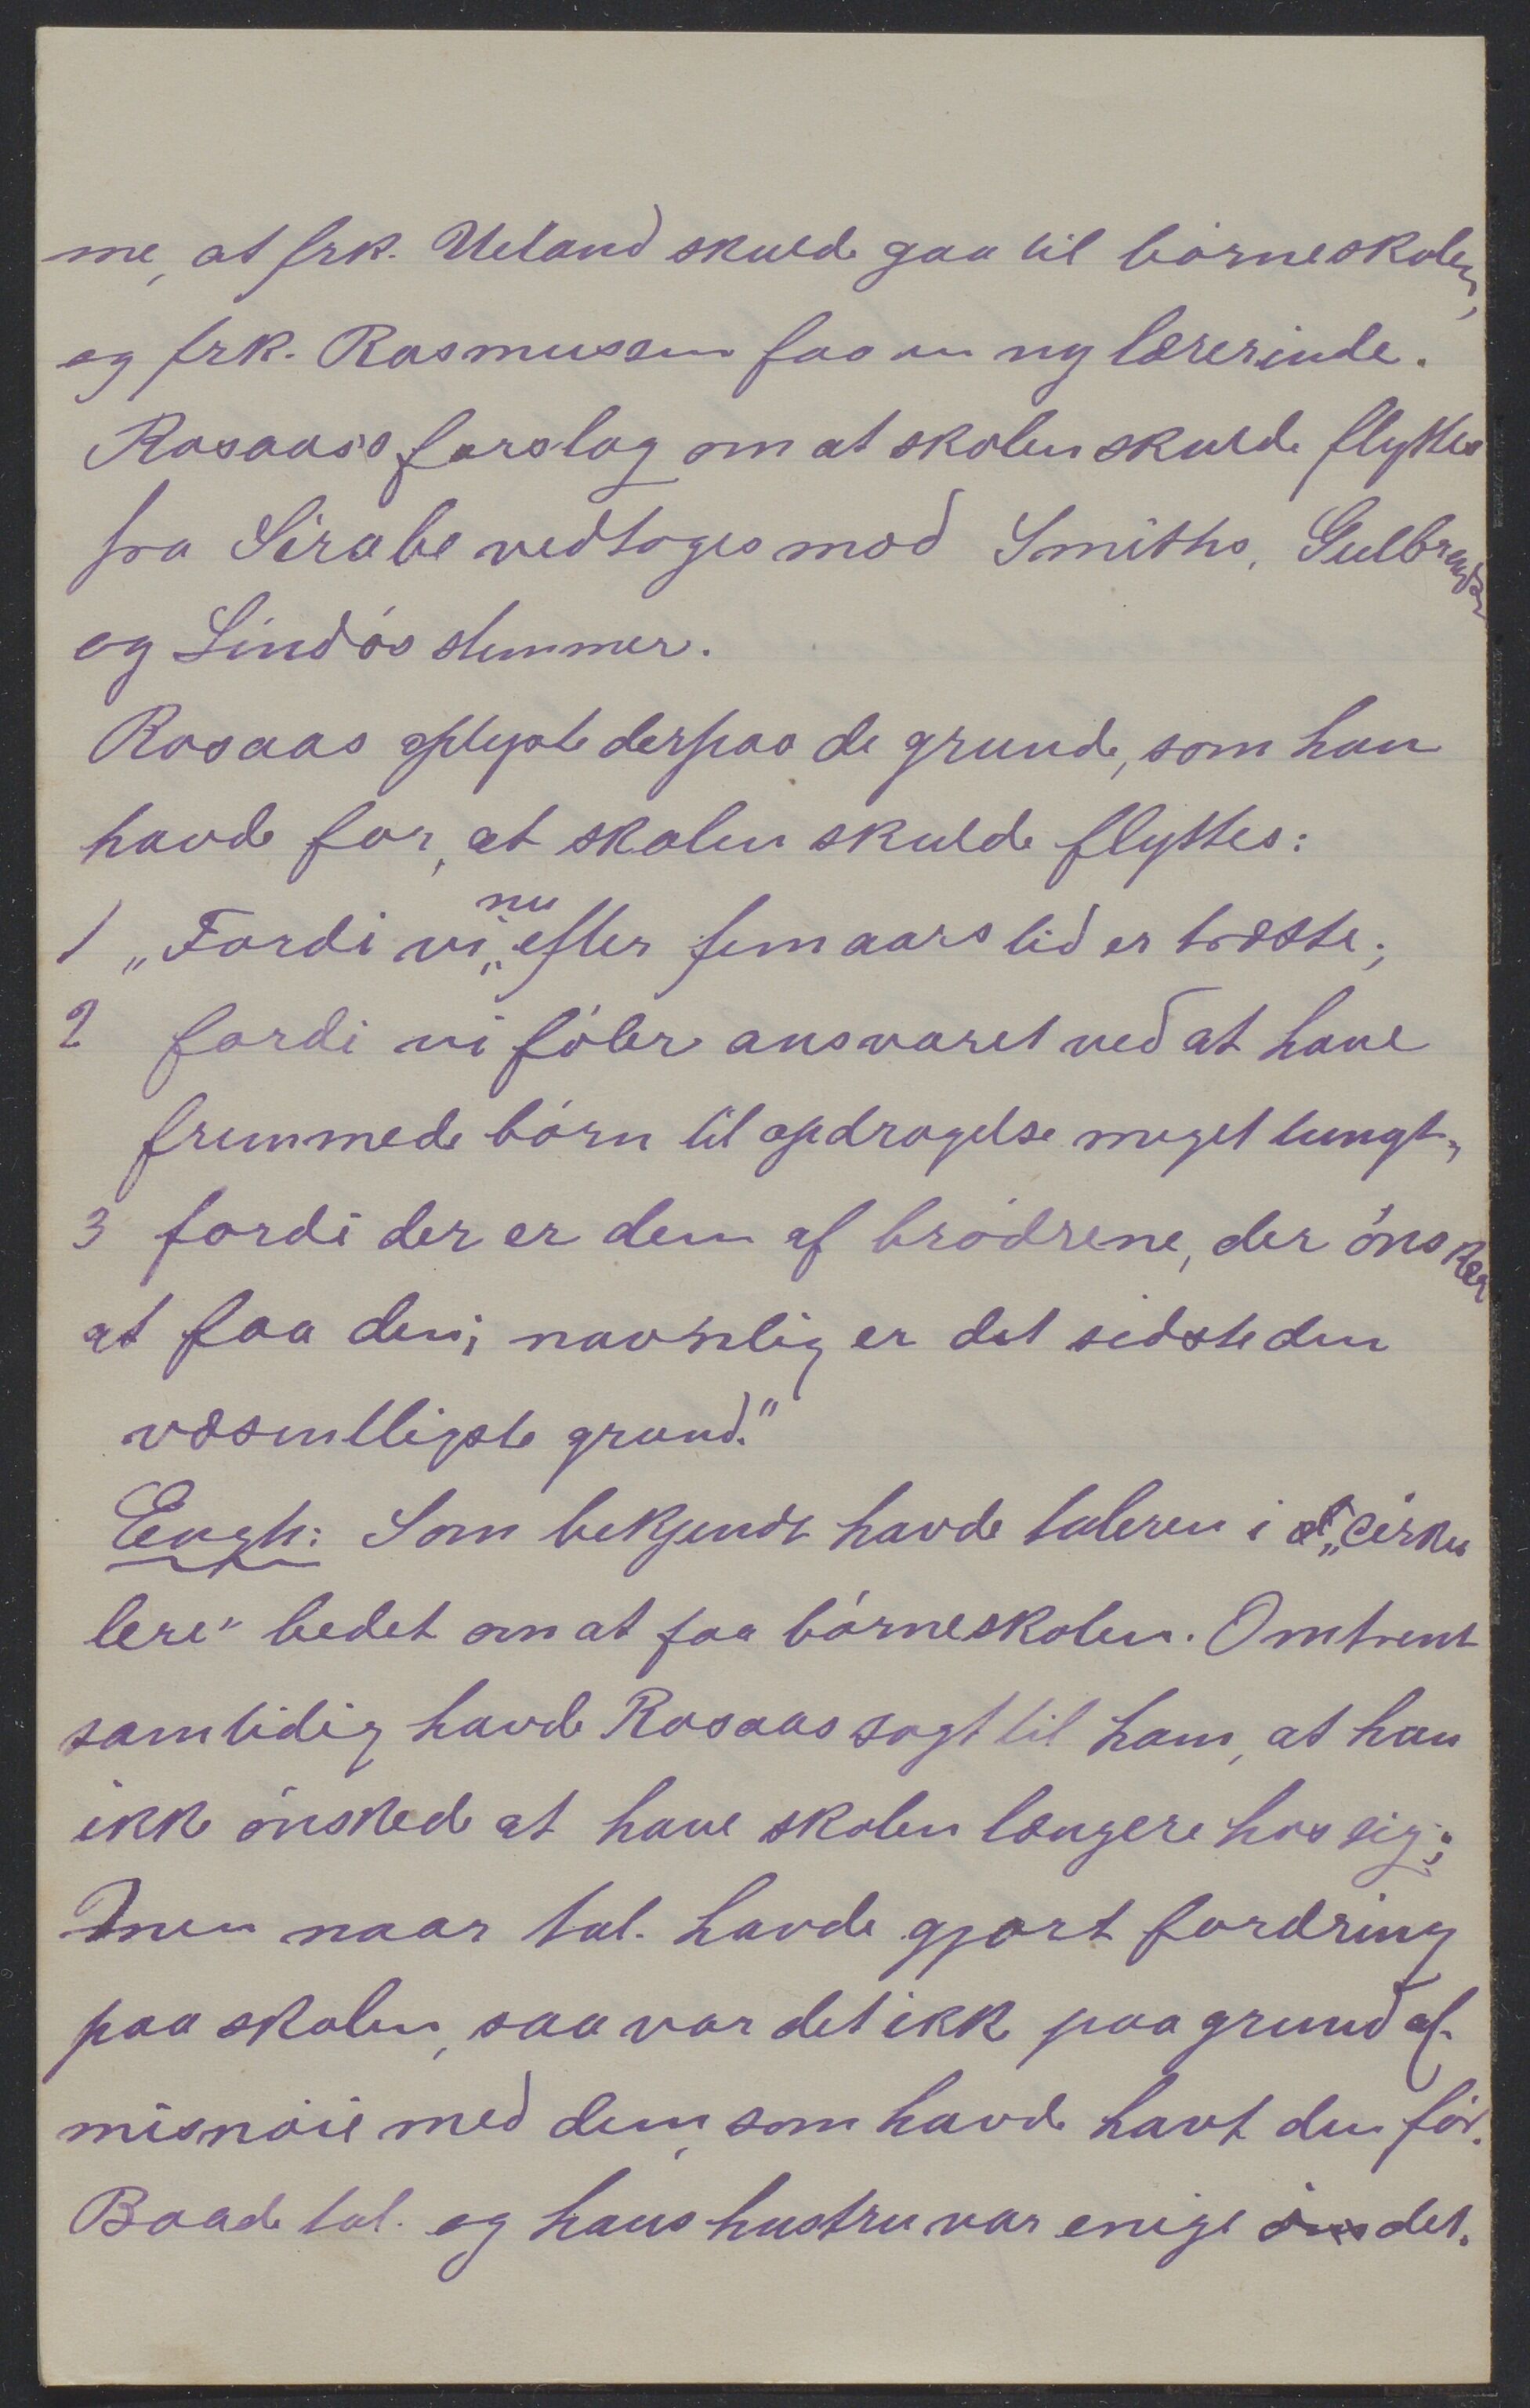 me, at frk. Ueland skulde gaa til börneskolen,
og frk. Rasmussen faa en ny lærerinde.
Rosaas's forslag om at skolen skulde flyttes
fra Sirabe vedtoges mod Smiths, Gulbrandsen
og Lindös stemmer.
Rosaas oplyste derpaa de grunde, som han
havde for, at skolen skulde flyttes:
1 „Fordi vi nu efter fem aars tid er trætte;
2 fordi vi föler ansvaret ved at have
fremmede börn til opdragelse meget tungt,
3 fordi der er dem af brödrene, der önsker
at faa den; navnlig er det sidste den
væsentligste grund."
Eugh: Som bekjendt havde taleren i et „cirku
lere" bedet om at faa börneskolen. Omtrent
samtidig havde Rosaas sagt til ham, at han
ikke önskede at have skolen længere hos sig;
men naar tal. havde gjort fordring
paa skolen, saa var det ikke paa grund af
misnöie med dem, som havde havt den för.
Baade tal. og hans hustru var enige det.